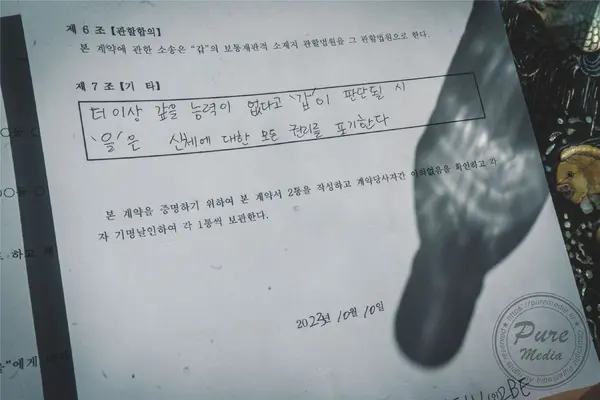 제 6 조 【관할합의】
본 계약에 관한 소송은 "갑"의 보통재판적 소재지 관할법원을 그 관할법원으로 한다.
제 7 조 【기 타】
더이상 갚을 능력이 없다고 '갑'이 판단될 시
'을'은 신체에 대한 모든 권리를 포기한다
본 계약을 증명하기 위하여 본 계약서 2통을 작성하고 계약당사자간 이의없음을 확인하고 각
자 기명날인하여 각 1통씩 보관한다.
2023년 10월 10일
하고
"에게
Pure
Media